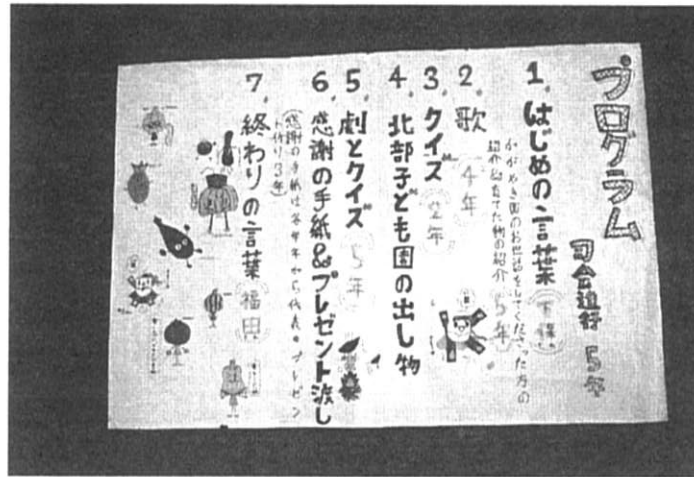 プログラム
司会進行 5年
1. はじめの言葉
かがやき畑のお世話をしてくださった方の
紹介&育てた物の紹介 5年
2. 歌 4年
3. クイズ 2年
4. 北部子ども園の出し物
5. 劇とクイズ 5年
6. 感謝の手紙&プレゼント渡し
(感謝の手紙は各学年から代表。プレゼン
ト作り3年)
7. 終わりの言葉 福田